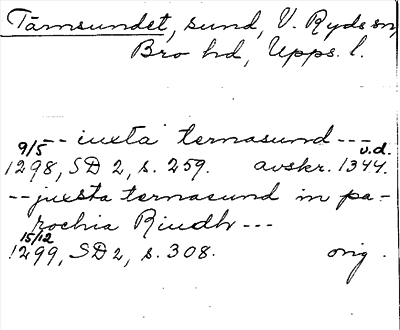 Tärnsundet, sund, V. Ryds sn,
Bro hd, Upps. l.
-- iuxta ternasund ---
9/5 1298, SD 2, s. 259. avskr. 1344. u.d.
-- juxsta ternasund in pa-
rochia Riudh ---
15/12 1299, SD 2, s. 308. orig.